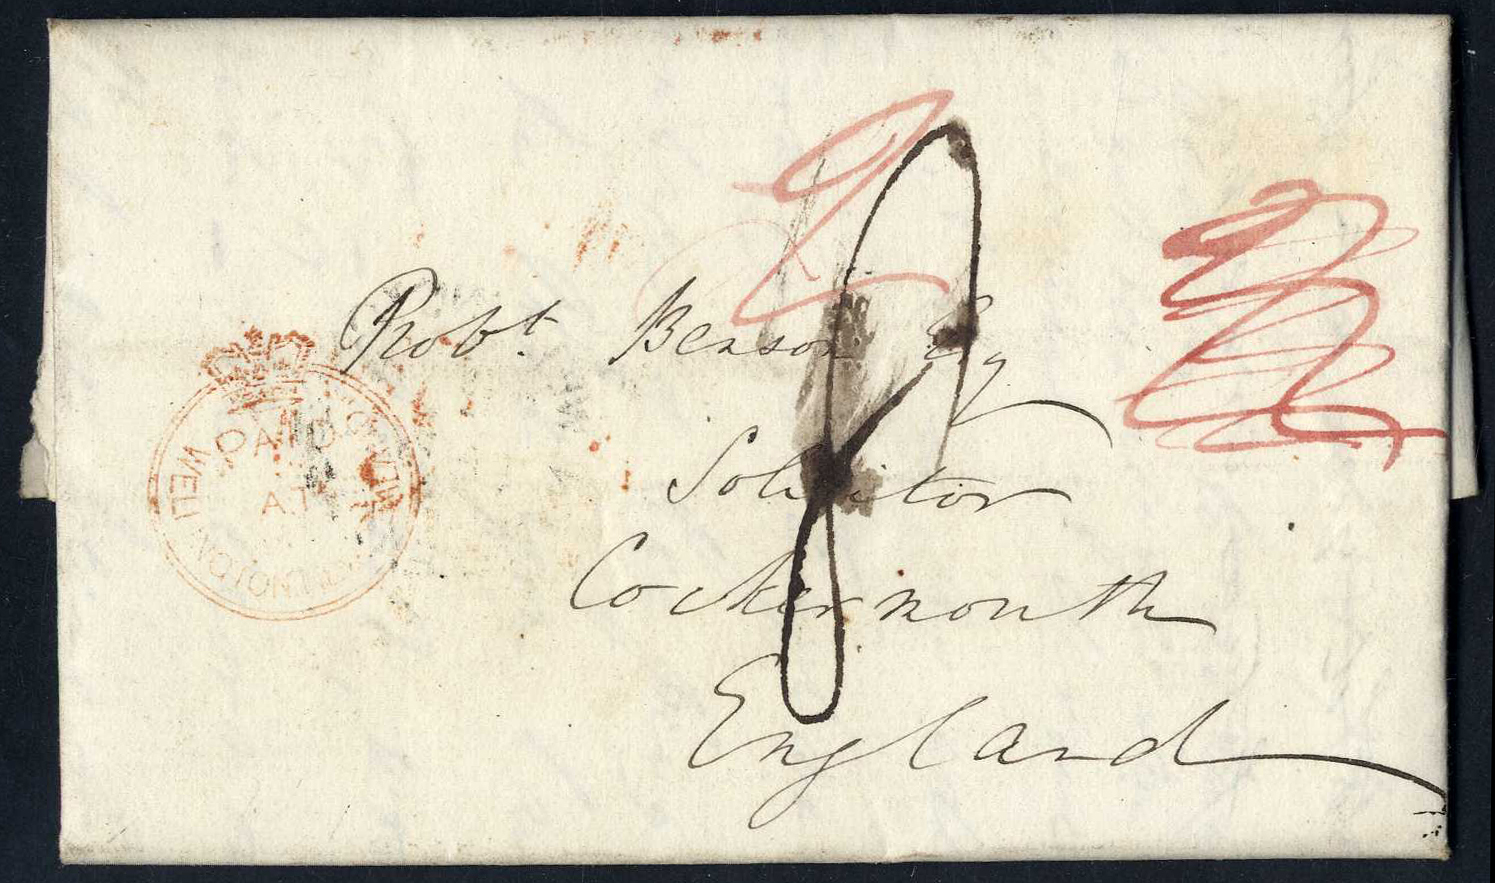 Robt. Benson Esq
Solicitor
Cockermouth
England
PAID
AT
WELLINGTON